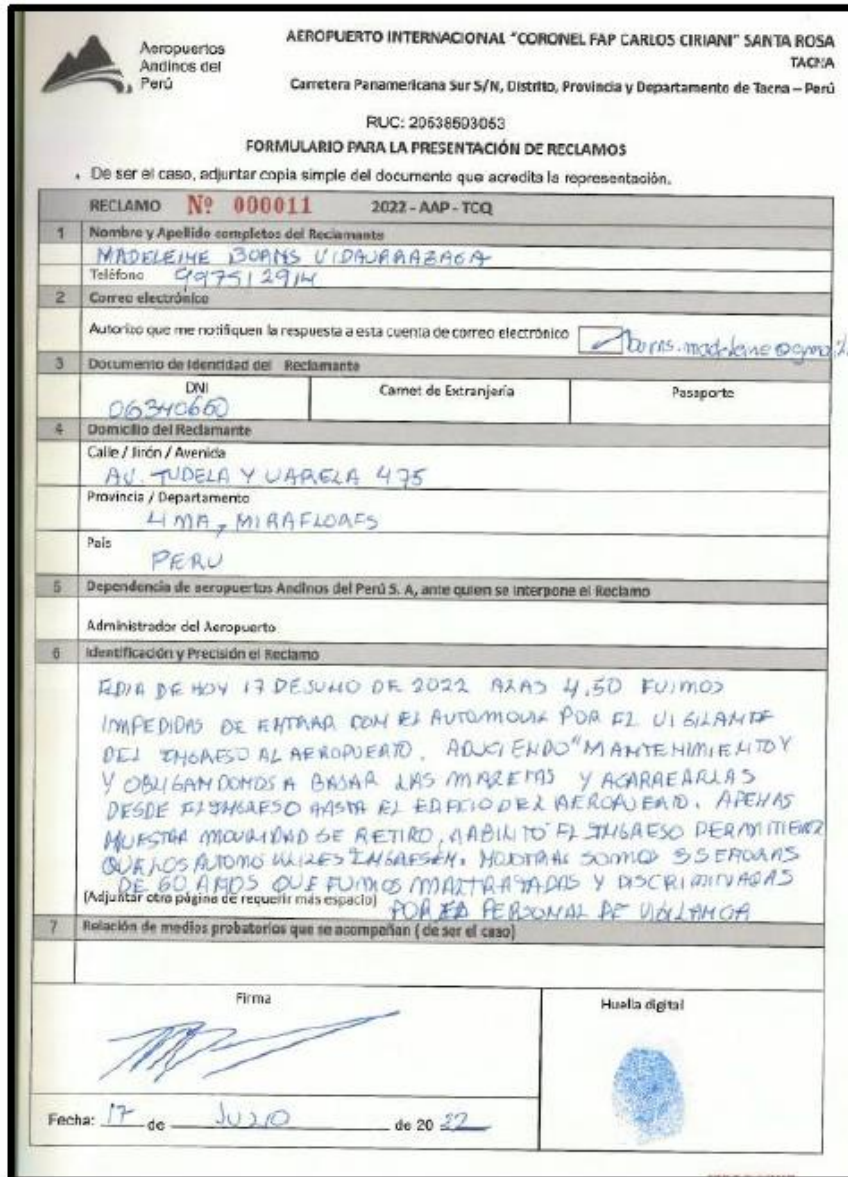 Aeropuertos
Andinos del
Perú
AEROPUERTO INTERNACIONAL "CORONEL FAP CARLOS CIRIANI" SANTA ROSA
TACNA
Carretera Panamericana Sur S/N, Distrito, Provincia y Departamento de Tacna – Perú
RUC: 20538593053
FORMULARIO PARA LA PRESENTACIÓN DE RECLAMOS
. De ser el caso, adjuntar copia simple del documento que acredita la representación.
RECLAMO Nº 000011 2022 - AAP - TCQ
1 Nombre y Apellido completos del Reclamante
MADELEINE BURNS VIDAURRAZAGA
Teléfono 997512914
2 Correo electrónico
Autorizo que me notifiquen la respuesta a esta cuenta de correo electrónico burns.madeleine@gmail
3 Documento de Identidad del Reclamante
DNI Carnet de Extranjería Pasaporte
06340660
4 Domicilio del Reclamante
Calle / Jirón / Avenida
AV. TUDELA Y VARELA 475
Provincia / Departamento
LIMA, MIRAFLORES
País
PERU
5 Dependencia de aeropuertos Andinos del Perú S. A, ante quien se interpone el Reclamo
Administrador del Aeropuerto
6 Identificación y Precisión el Reclamo
EL DIA DE HOY 17 DE JULIO DE 2022 A LAS 4,50 FUIMOS
IMPEDIDAS DE ENTRAR CON EL AUTOMOVIL POR EL VIGILANTE
DEL INGRESO AL AEROPUERTO. ADUCIENDO "MANTENIMIENTO Y
Y OBLIGANDONOS A BAJAR LAS MALETAS Y ACARREARLAS
DESDE EL INGRESO HASTA EL EDIFICIO DEL AEROPUERTO. APENAS
NUESTRA MOVILIDAD SE RETIRO, HABILITO EL INGRESO PERMITIENDO
QUE LOS AUTOMOVILES INGRESEN. NOSOTRAS SOMOS 3 SEÑORAS
DE 60 AÑOS QUE FUIMOS MALTRATADAS Y DISCRIMINADAS
(Adjuntar otra página de requerir más espacio) POR EL PERSONAL DE VIGILANCIA
7 Relación de medios probatorios que se acompañan ( de ser el caso)
Firma Huella digital
Fecha: 17 de JULIO de 20 22